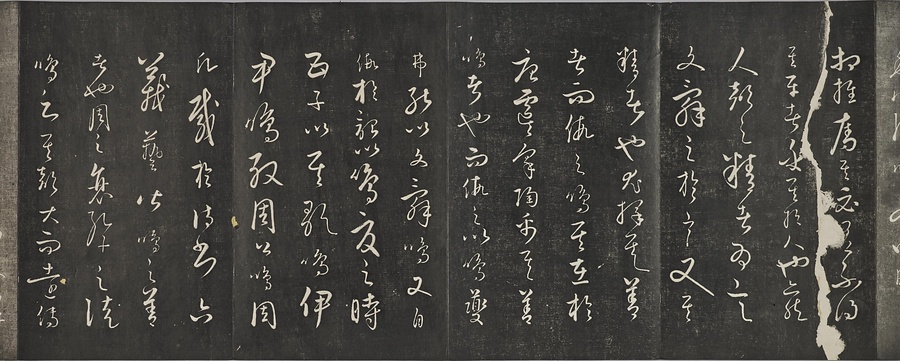 相推奪其必有不得
其平者乎其於人也亦然
人聲之精者為言
文辭之於言又其
精者也尤擇其善
者而假之鳴其在於
唐虞咎陶禹其善
鳴者也而假之以鳴夔
弗能以文辭鳴又自
假於韶以鳴夏之時
五子以其歌鳴伊
尹鳴殷周公鳴周
凡載於詩書六
藝皆鳴之善
者也周之衰孔子之徒
鳴之其聲大而遠傳